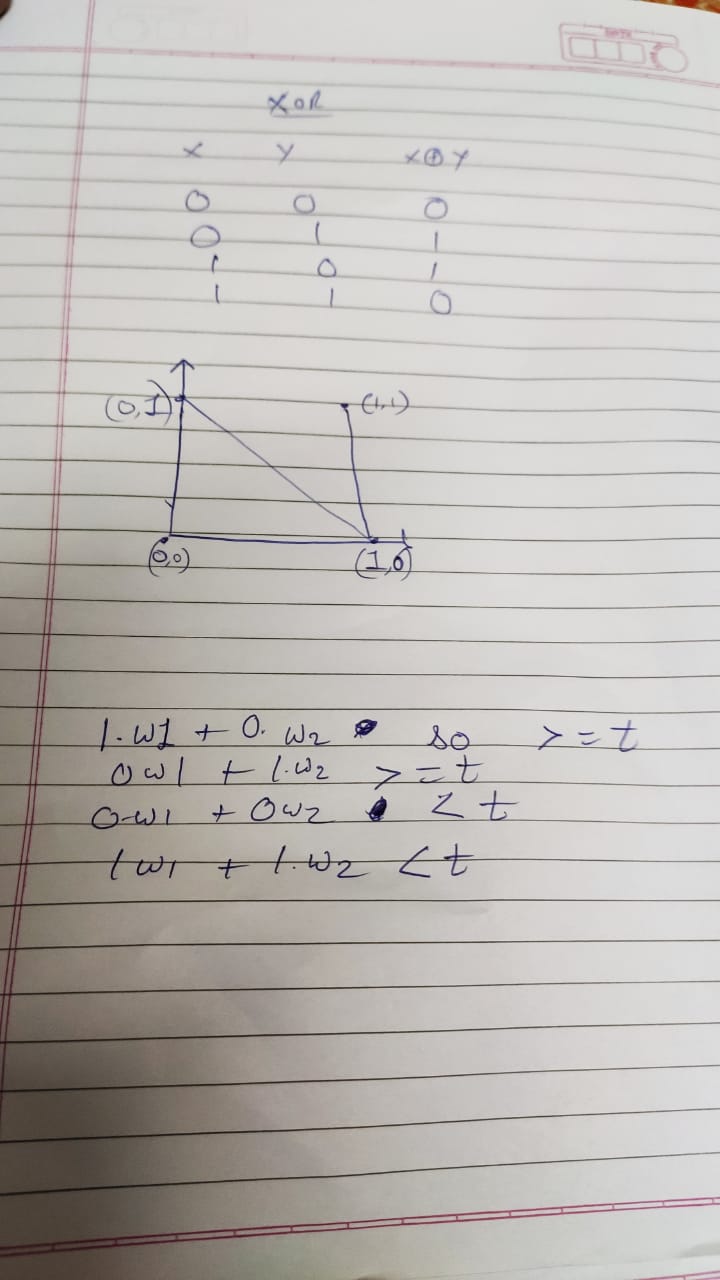 DATE
XOR
X Y X⊕Y
0 0 0
0 1 1
1 0 1
1 1 0
(0,1) (1,1)
(0,0) (1,0)
1.w1 + 0.w2 so >=t
0w1 + 1.w2 >=t
0.w1 + 0w2 < t
1w1 + 1.w2 <t